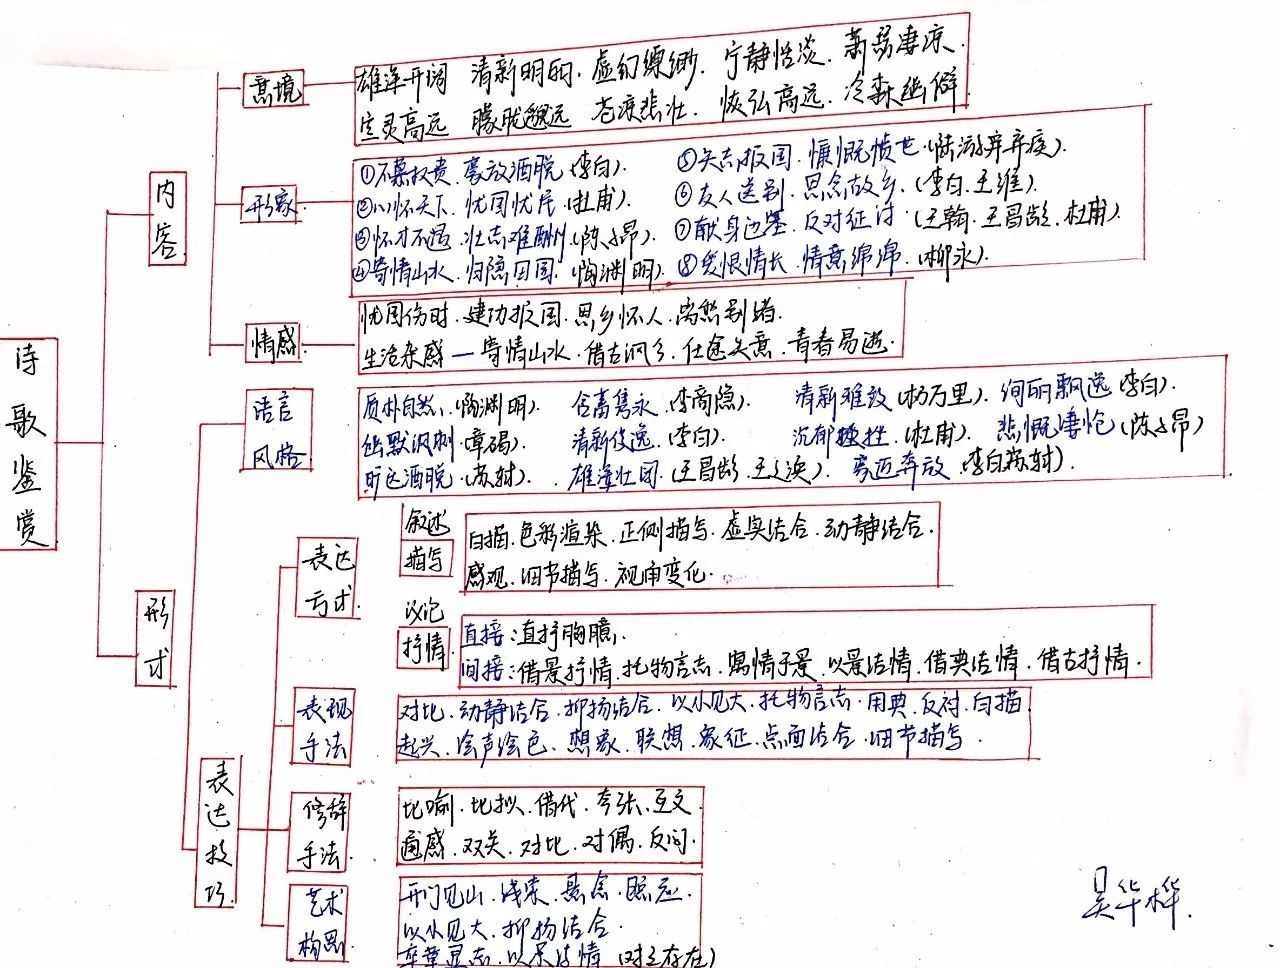 诗歌鉴赏
内容
意境
雄浑开阔 清新明丽·虚幻缥缈·宁静恬淡·萧瑟凄凉·
空灵高远 朦胧 苍凉悲壮·恢弘高远·冷森幽僻
形象
①不慕权贵·豪放洒脱·(李白)· ⑤矢志报国·慷慨愤世·(陆游辛弃疾)·
②心怀天下·忧国忧民·(杜甫)· ⑥友人送别·思念故乡·(李白·王维)·
③怀才不遇·壮志难酬(陈子昂)· ⑦献身边塞·反对征讨·(王翰·王昌龄·杜甫)
④寄情山水·归隐田园·(陶渊明)· ⑧爱恨情长·情意绵绵·(柳永)·
情感
忧国伤时·建功报国·思乡怀人·离愁别绪·
生活杂感—寄情山水·借古讽今·仕途失意·青春易逝·
形式
语言风格
质朴自然·(陶渊明)· 含蓄隽永·(李商隐)· 清新雅致·(杨万里)·绚丽飘逸·(李白)·
幽默讽刺·(章碣)· 清新俊逸·(李白)· 沉郁·(杜甫)· 悲慨凄怆·(陈子昂)
旷达洒脱·(苏轼)· 雄浑壮阔·(王昌龄·王之涣)· 豪迈奔放·(李白苏轼)·
表达技巧
表达方式·
叙述
描写
白描·色彩渲染·正侧描写·虚实结合·动静结合·
感观·细节描写·视角变化·
议论
抒情
直接：直抒胸臆·
间接：借景抒情·托物言志·寓情于景·以景结情·借典结情·借古抒情·
表现手法
对比·动静结合·抑扬结合·以小见大·托物言志·用典·反衬·白描
起兴·绘声绘色·想象·联想·象征·点面结合·细节描写·
修辞手法·
比喻·比拟·借代·夸张·互文
通感·双关·对比·对偶·反问·
艺术构思
开门见山·线索·悬念·照应·
以小见大·抑扬结合·
卒章显志·以景结情 (对立存在)
吴华桦·